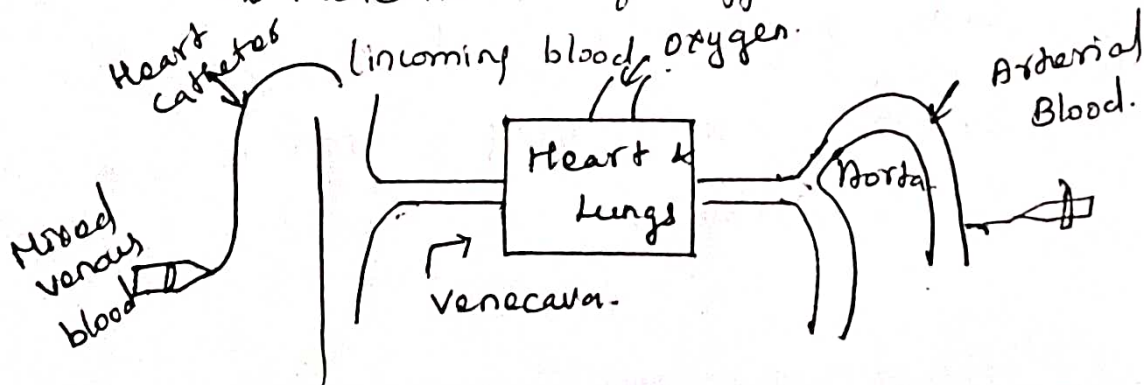 Heart
catheter
(incoming blood
oxygen.
Arterial
Blood.
Heart &
Lungs
Aorta
Mixed
venous
blood
Venecava.